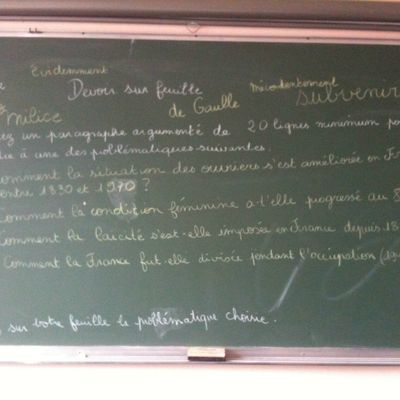 Évidemment
Devoir sur feuille
mécontentement
subvenir
milice
de Gaulle
ez un paragraphe argumenté de 20 lignes minimum po
dre à une des problématiques suivantes.
Comment la situation des ouvriers s'est améliorée en Fr
entre 1830 et 1970 ?
Comment la condition féminine a-t'elle progressé au
Comment la laïcité s'est-elle imposée en France depuis 18
Comment la France fut-elle divisée pendant l'occupation (19
sur votre feuille la problématique choisie.